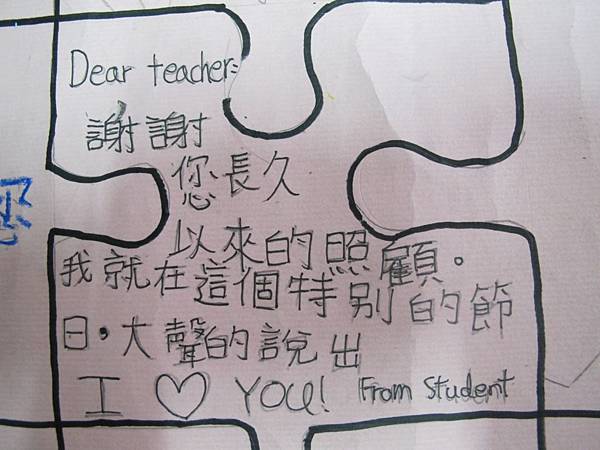 Dear teacher:
謝謝
您長久
以來的照顧。
我就在這個特別的節
日,大聲的說出
I ♡ YOU! From Student